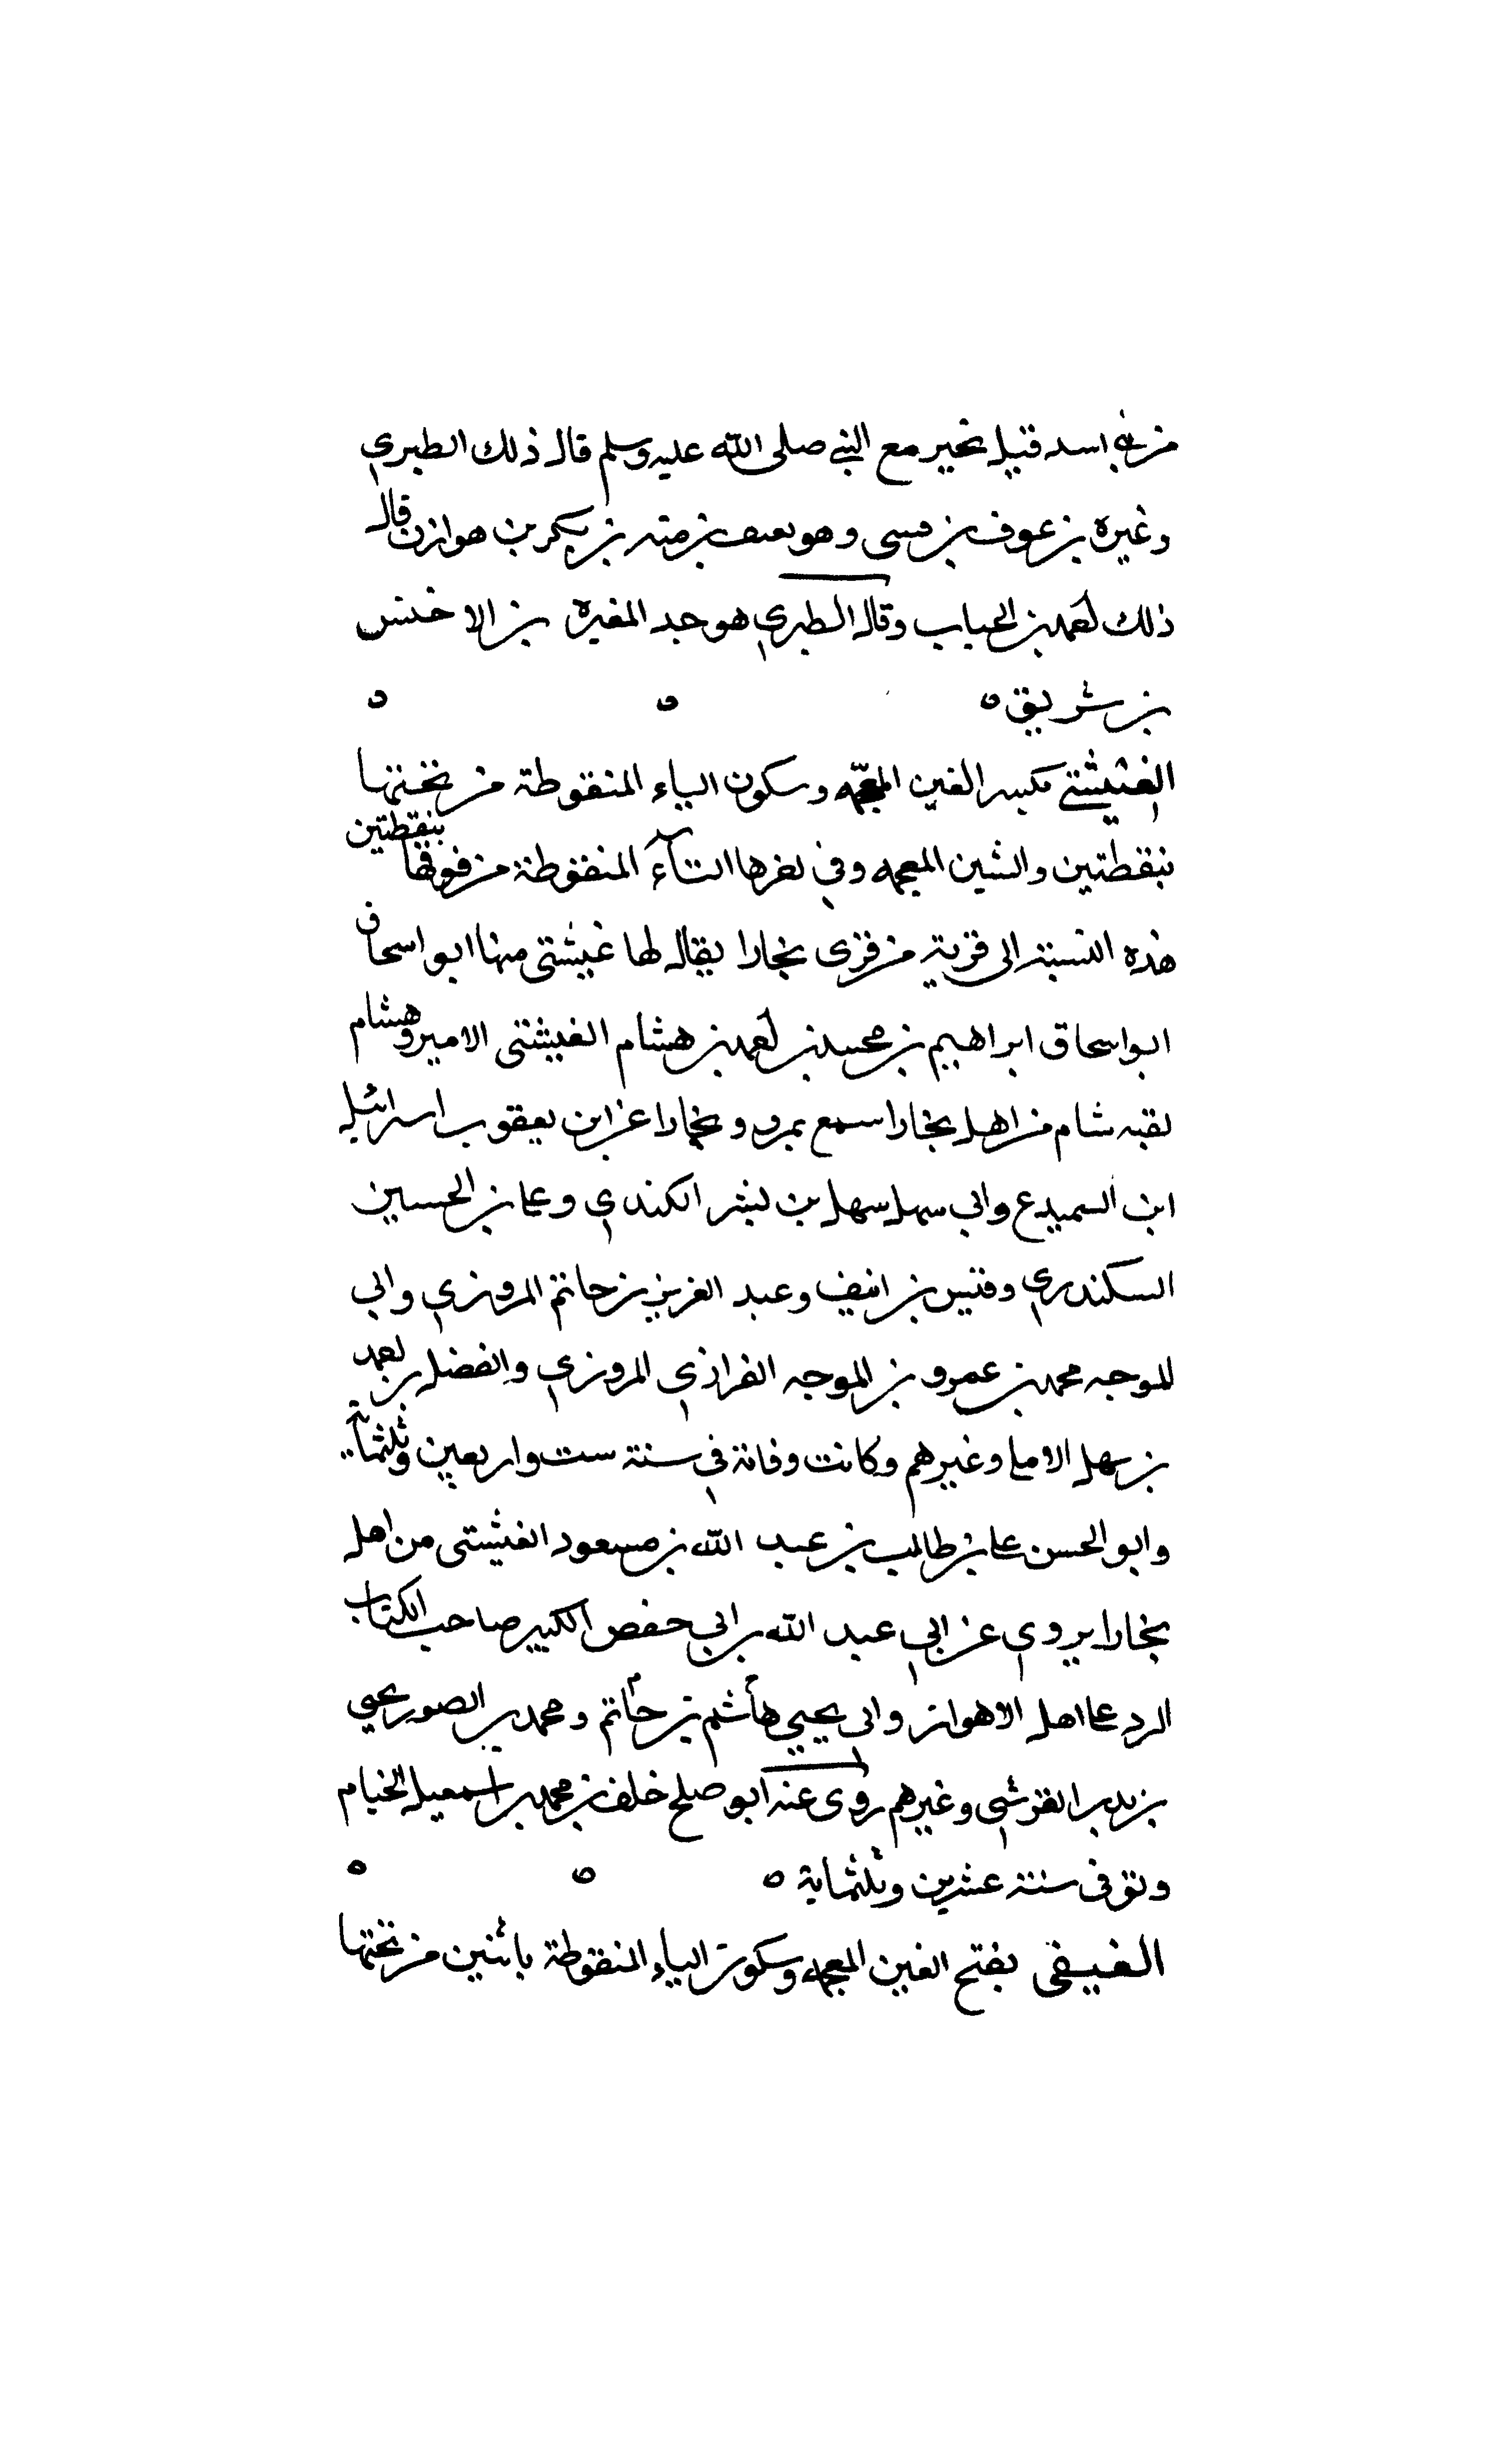 من بني اسد قتيل بخيبر مع النبي صلى الله عليه وسلم قال ذلك الطبري
وغيرة بن عوف بن قسي وهو ثقيف بن منبه بن بكر بن هوازن قال
ذلك احمد بن الحباب وقال الطبري هو جد المغيرة بن الاخنس
بن شريق ه ه ه
الغيشتي بكسر الغين المعجمة وسكون الياء المنقوطة من تحتها
بنقطتين والشين المعجمة وفي اخرها التاء المنقوطة من فوقها بنقطتين
هذه النسبة الى قرية من قرى بخارا يقال لها غيشتى منها ابو اسحاق
ابو اسحاق ابراهيم بن محمد بن احمد بن هشام الغيشتى الامير وهشام
لقبه شام من اهل بخارا سمع بمرو وبخارا عن ابن يعقوب اسرائيل
ابن السميدع وابي سهل سهل بن بشر الكندي وعلي بن الحسين
السكندري وقتيس بن انيف وعبد العزيز بن حاتم المروزي وابي
الموجه محمد بن عمرو بن الموجه الفزاري المروزي والفضل بن احمد
بن سهل الاملي وغيرهم وكانت وفاته في سنة ست واربعين وثلثمائة
وابو الحسن علي بن طالب بن عبد الله بن مسعود الغيشتى من اهل
بخارا يروي عن ابي عبد الله بن ابي حفص الكبير صاحب الكتاب
الرد على اهل الاهواز وابى يحيي هاشم بن حاتم ومحمد بن الصور يحيي
بن بدر القرشي وغيرهم روى عنه ابو صلح خلف بن محمد بن اسمعيل الخيام
وتوفى سنة عشرين وثلثماية ه ه ه
الغيفى بفتح الغين المعجمة وسكون الياء المنقوطة باثنين من تحتها